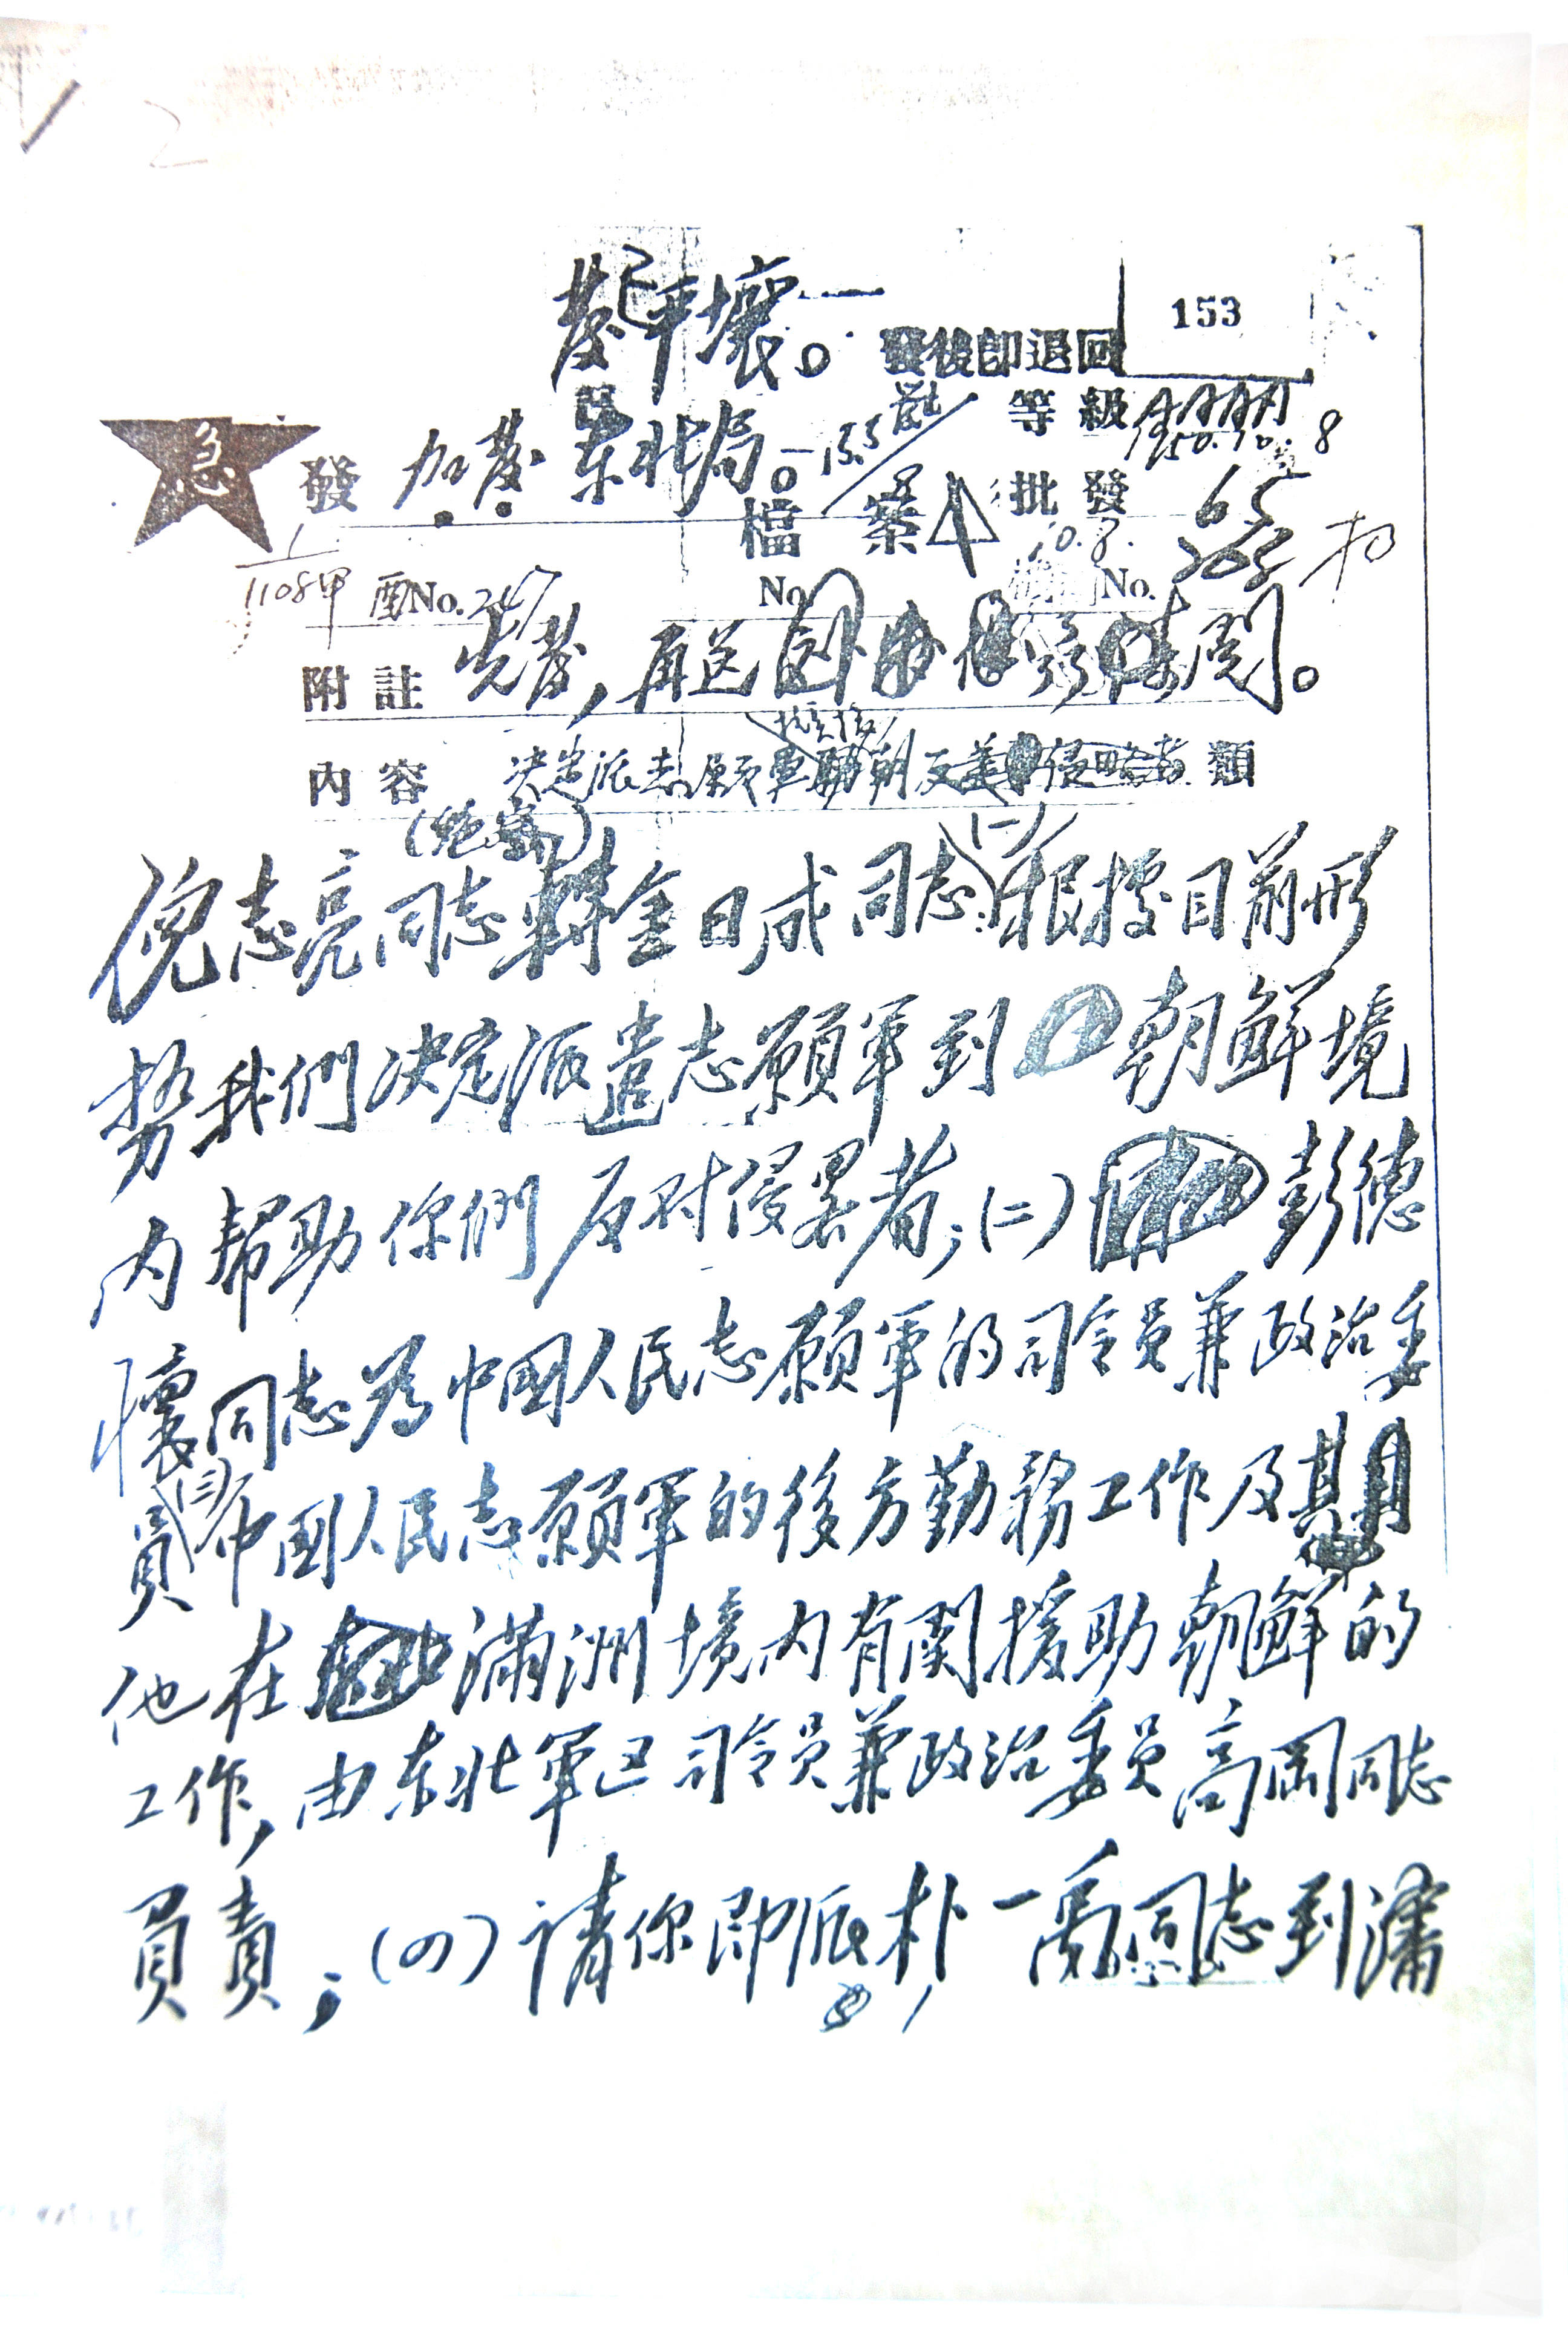 2
153
發平壤。
發後即退回
等級 AAAA
急
發 加發東北局。
50.10.8
檔案 批發
10.8.
1108甲 酉No. 247 No. No.
附註 先發,再送 閱。
內容 決定派志願軍 朝反 侵略者 類
(絕密)
倪志亮同志轉金日成同志:(一)根據目前形
勢我們决定派遣志願軍到朝鮮境
内帮助你們反对侵畧者;(二)彭德
懷同志為中國人民志願軍的司令員兼政治委
員(三)中國人民志願軍的後方勤務工作及其
他在滿洲境内有関援助朝鮮的
工作,由东北軍区司令員兼政治委員高岡同志
負責;(四)請你即派朴一禹同志到瀋